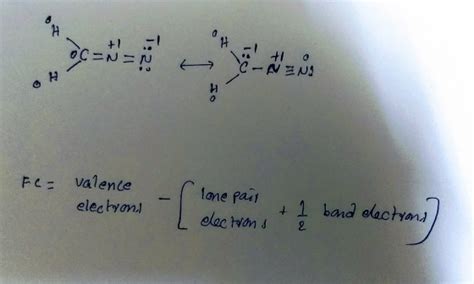 0 H 0 C = N +1 = N -1 0 H ↔ 0 H C -1 - N +1 ≡ N 0 H 0
FC = valence electrons - [lone pair electrons + 1/2 bond electrons]